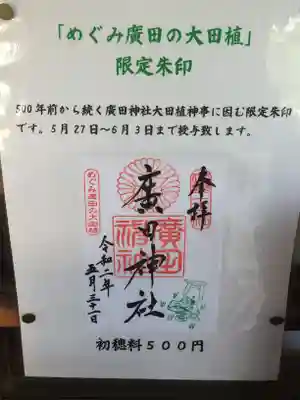 「めぐみ廣田の大田植」
限定朱印
500年前から続く廣田神社大田植神事に因む限定朱印
です。5月27日～6月3日まで授与致します。
奉拝
廣田神社
めぐみ廣田の大田植
令和二年
五月三十一日
初穂料500円